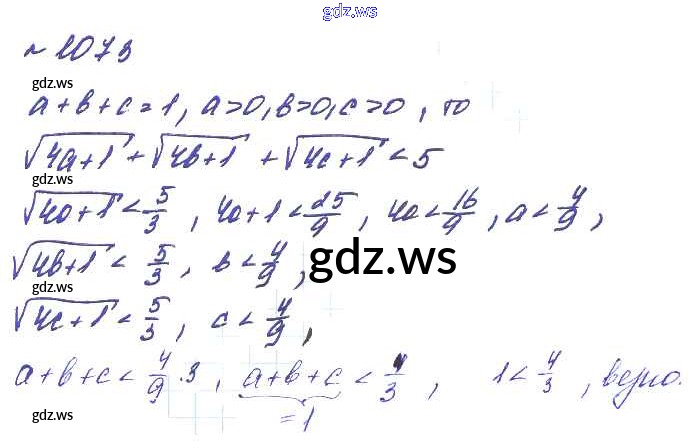 gdz.ws
№ 1073
gdz.ws
a+b+c=1, a>0, b>0, c>0, то
√4a+1 + √4b+1 + √4c+1 < 5
gdz.ws
√4a+1 < 5/3, 4a+1 < 25/9, 4a < 16/9, a < 4/9,
√4b+1 < 5/3, b < 4/9,
gdz.ws
gdz.ws
√4c+1 < 5/3, c < 4/9,
a+b+c < 4/9 · 3, a+b+c < 4/3, 1 < 4/3, верно.
= 1
gdz.ws